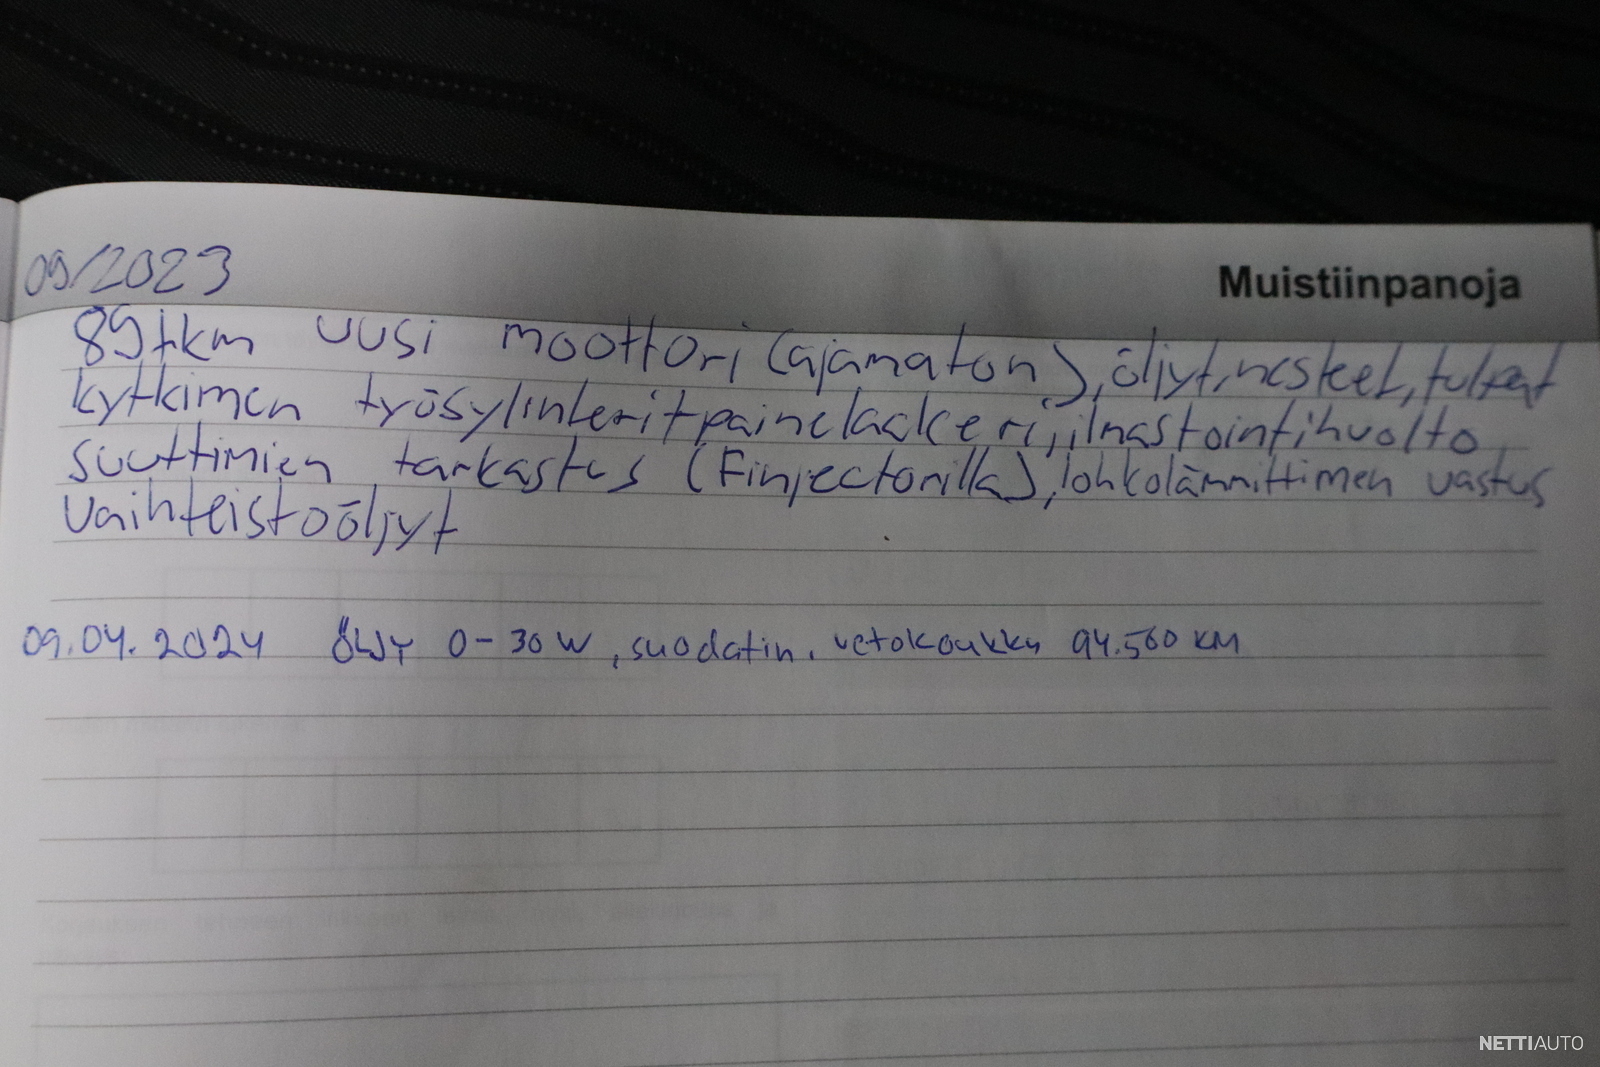 09/2023
Muistiinpanoja
89tkm uusi moottori (ajamaton), öljyt, nesteet, tulpat
kytkimen työsylinterit painelaakeri, ilmastointihuolto,
suuttimien tarkastus (Finjectorilla), lohkolämmittimen vastus
vaihteistoöljyt
09.04.2024 ÖLJYT 0-30W, suodatin. vetokoukku 94.560 KM
NETTIAUTO